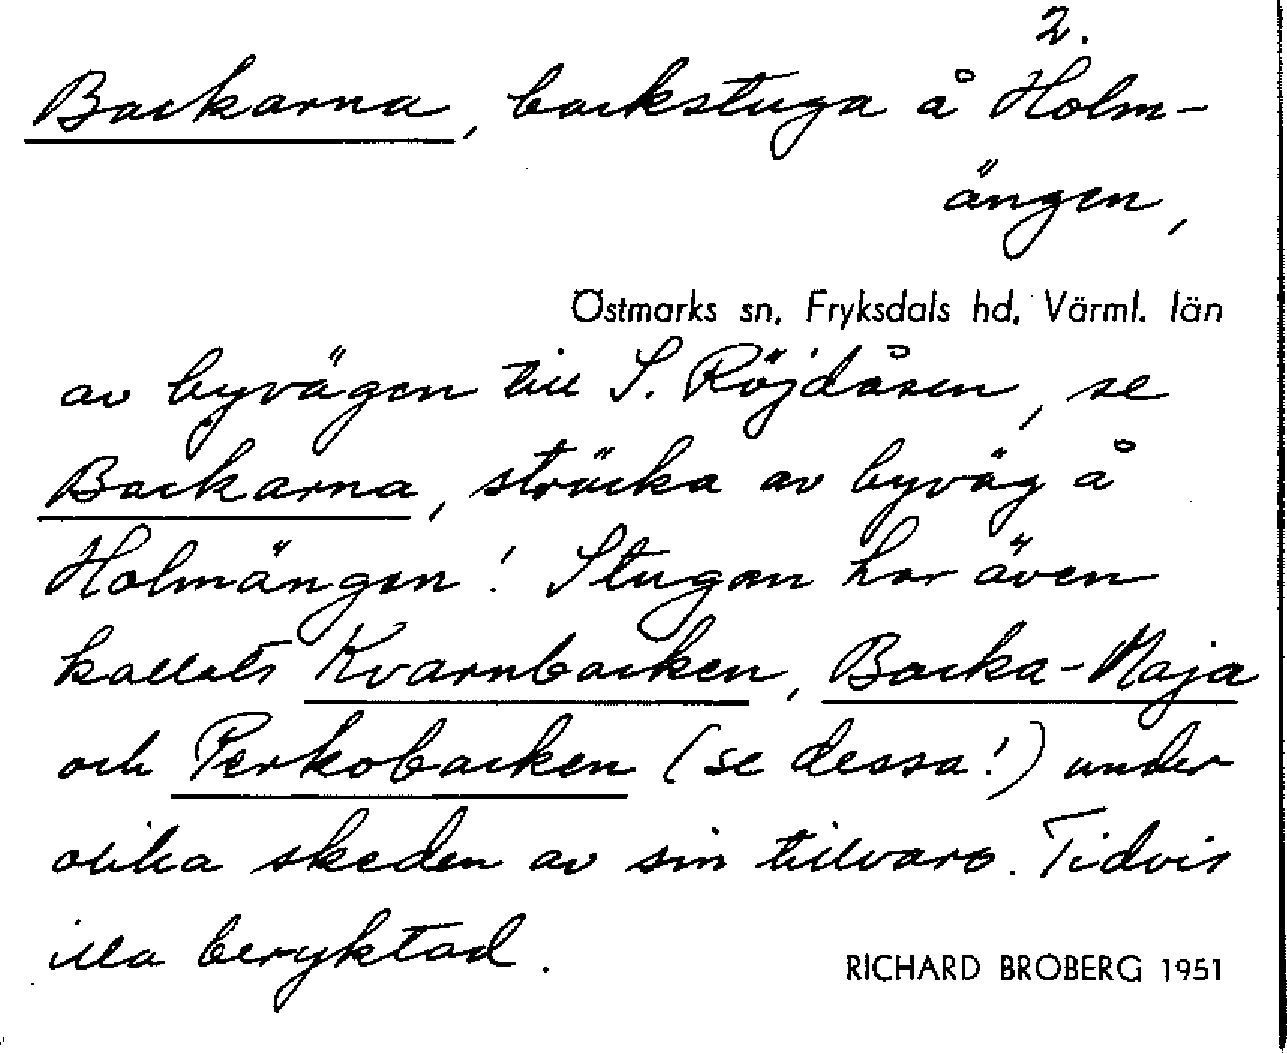 2.
Backarna, backstuga å Holm-
ängen,
Östmarks sn, Fryksdals hd, Värml. län
av byvägen till S. Röjdåsen, se
Backarna, sträcka av byväg å
Holmängen! Stugan har även
kallats Kvarnbacken, Backa-Maja
och Perkobacken (se dessa!) under
olika skeden av sin tillvaro. Tidvis
illa beryktad.
RICHARD BROBERG 1951